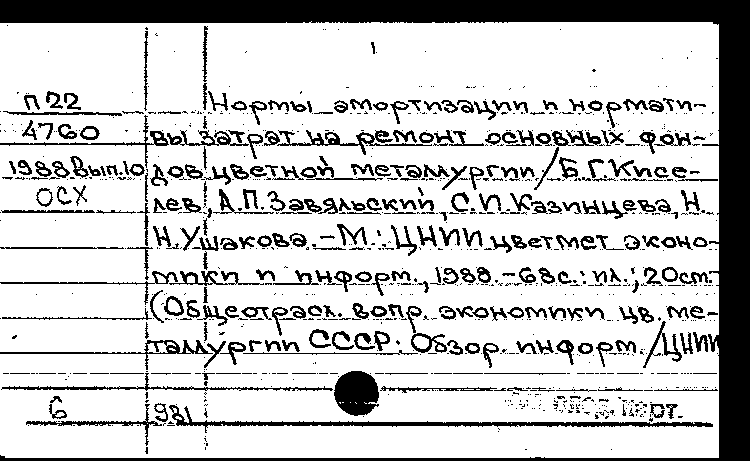 1
П22 Нормы амортизации и нормати-
4760 вы затрат на ремонт основных фон-
1988 Вып.10 дов цветной металлургии / Б.Г. Кисе-
ОСХ лев, А.П. Завяльский, С.И. Казинцева, Н.
Н. Ушакова. - М.: ЦНИИ цветмет эконо-
мики и информ., 1988. - 68 с.: ил.; 20 см. -
(Общеотрасл. вопр. экономики цв. ме-
таллургии СССР: Обзор. информ. / ЦНИИ
6 981